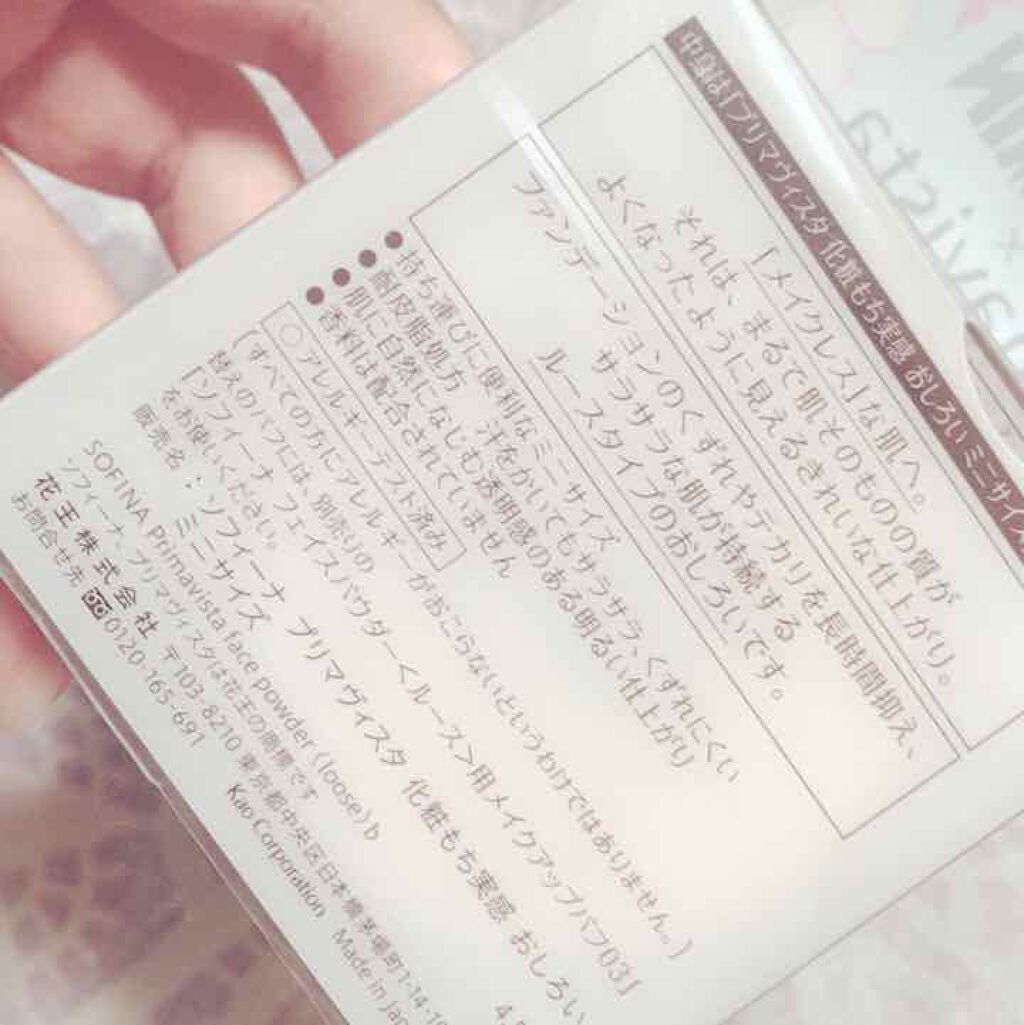 中身は「プリマヴィスタ 化粧もち実感 おしろい ミニサイズ
「メイクレス」な肌へ。
それは、まるで肌そのものの質が
よくなったように見えるきれいな仕上がり。
ファンデーションのくずれやテカリを長時間抑え、
サラサラな肌が持続する
ルースタイプのおしろいです。
●持ち運びに便利なミニサイズ
●耐皮脂処方 汗をかいてもサラサラ、くずれにくい
●肌に自然になじむ透明感のある明るい仕上がり
●香料は配合されていません
○アレルギーテスト済み
[すべての方にアレルギーがおこらないというわけではありません。]
替えのパフには、別売りの
「ソフィーナ フェイスパウダー<ルース>用メイクアップパフ03」
をお使いください。
販売名:ソフィーナ プリマヴィスタ 化粧もち実感 おしろい
ミニサイズ
SOFINA Primavista face powder (loose) b
ソフィーナ、プリマヴィスタは花王の商標です
花王株式会社 〒103-8210 東京都中央区日本橋茅場町1-14-10
お問合せ先 0120-165-691
Kao Corporation Made in
avista